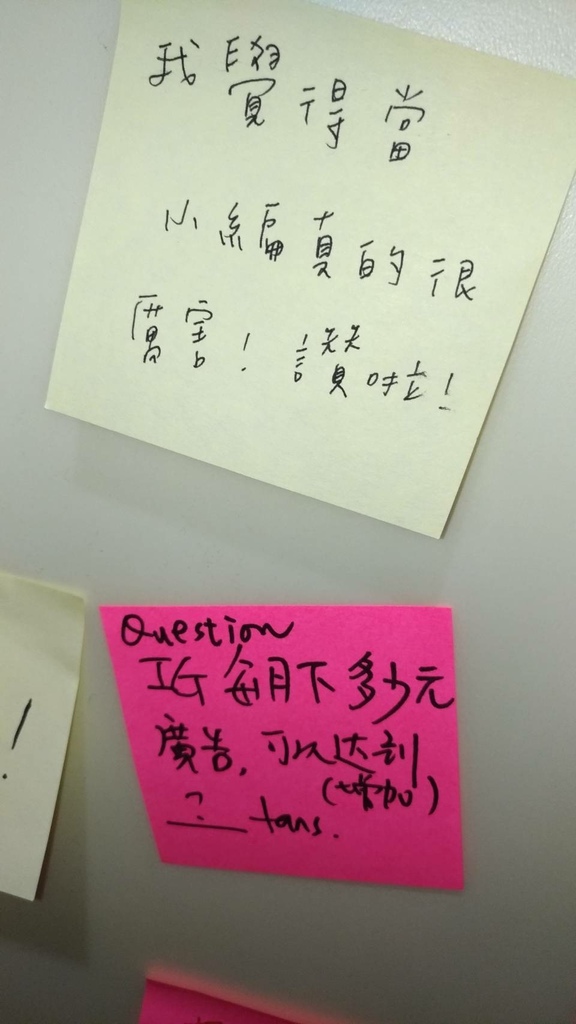 我覺得當
小編真的很
厲害！讚啦！
!
Question
IG每月下多少元
廣告,可以达到
(增加)
? fans.